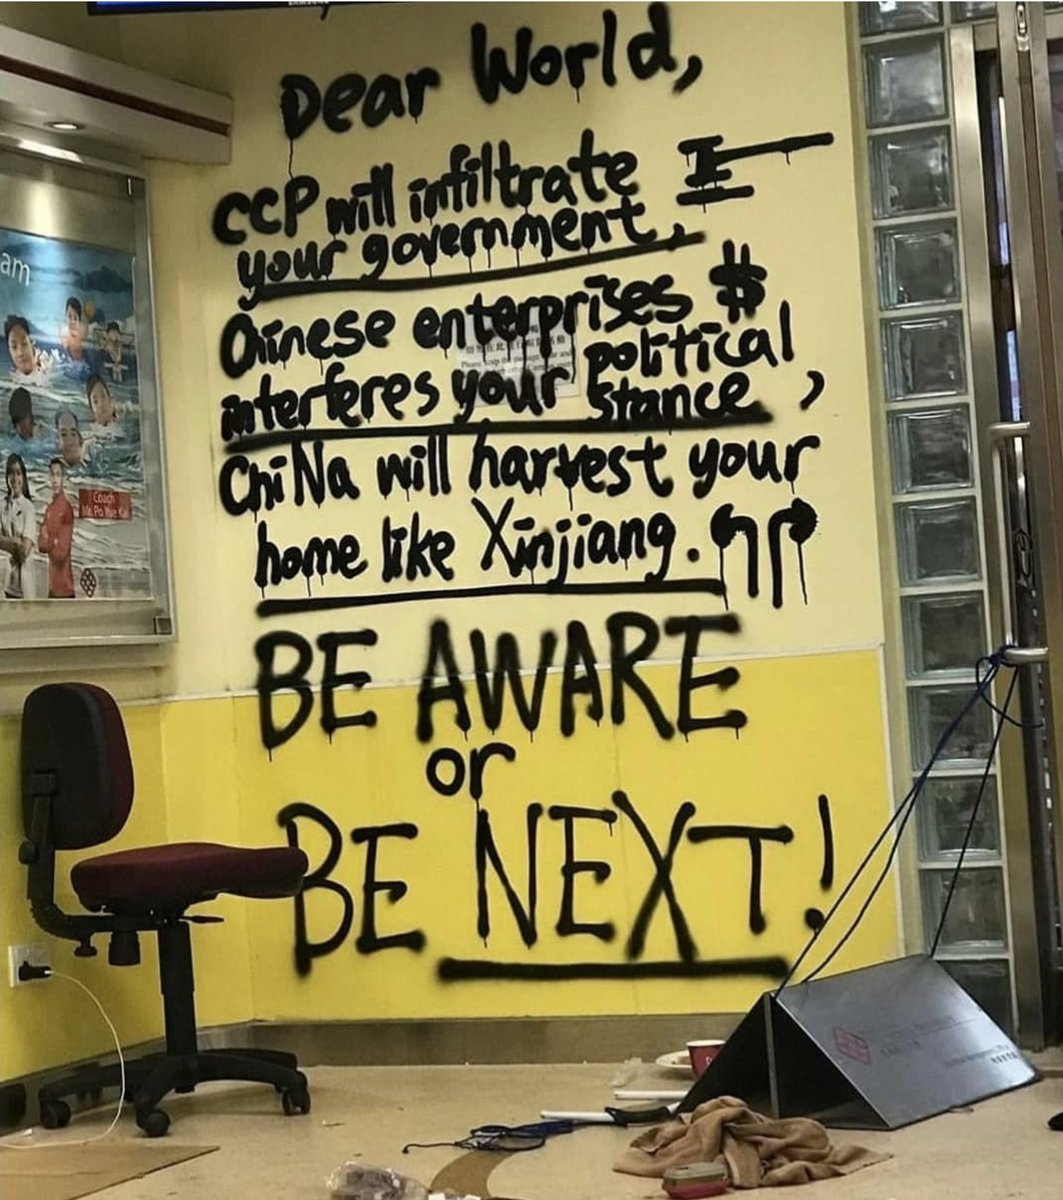 Dear World,
CCP will infiltrate
your government,
Chinese enterprises $
interferes your political
stance,
ChiNa will harvest your
home like Xinjiang.
BE AWARE
or
BE NEXT!
am
Coach
Mr. Po Yue Kai